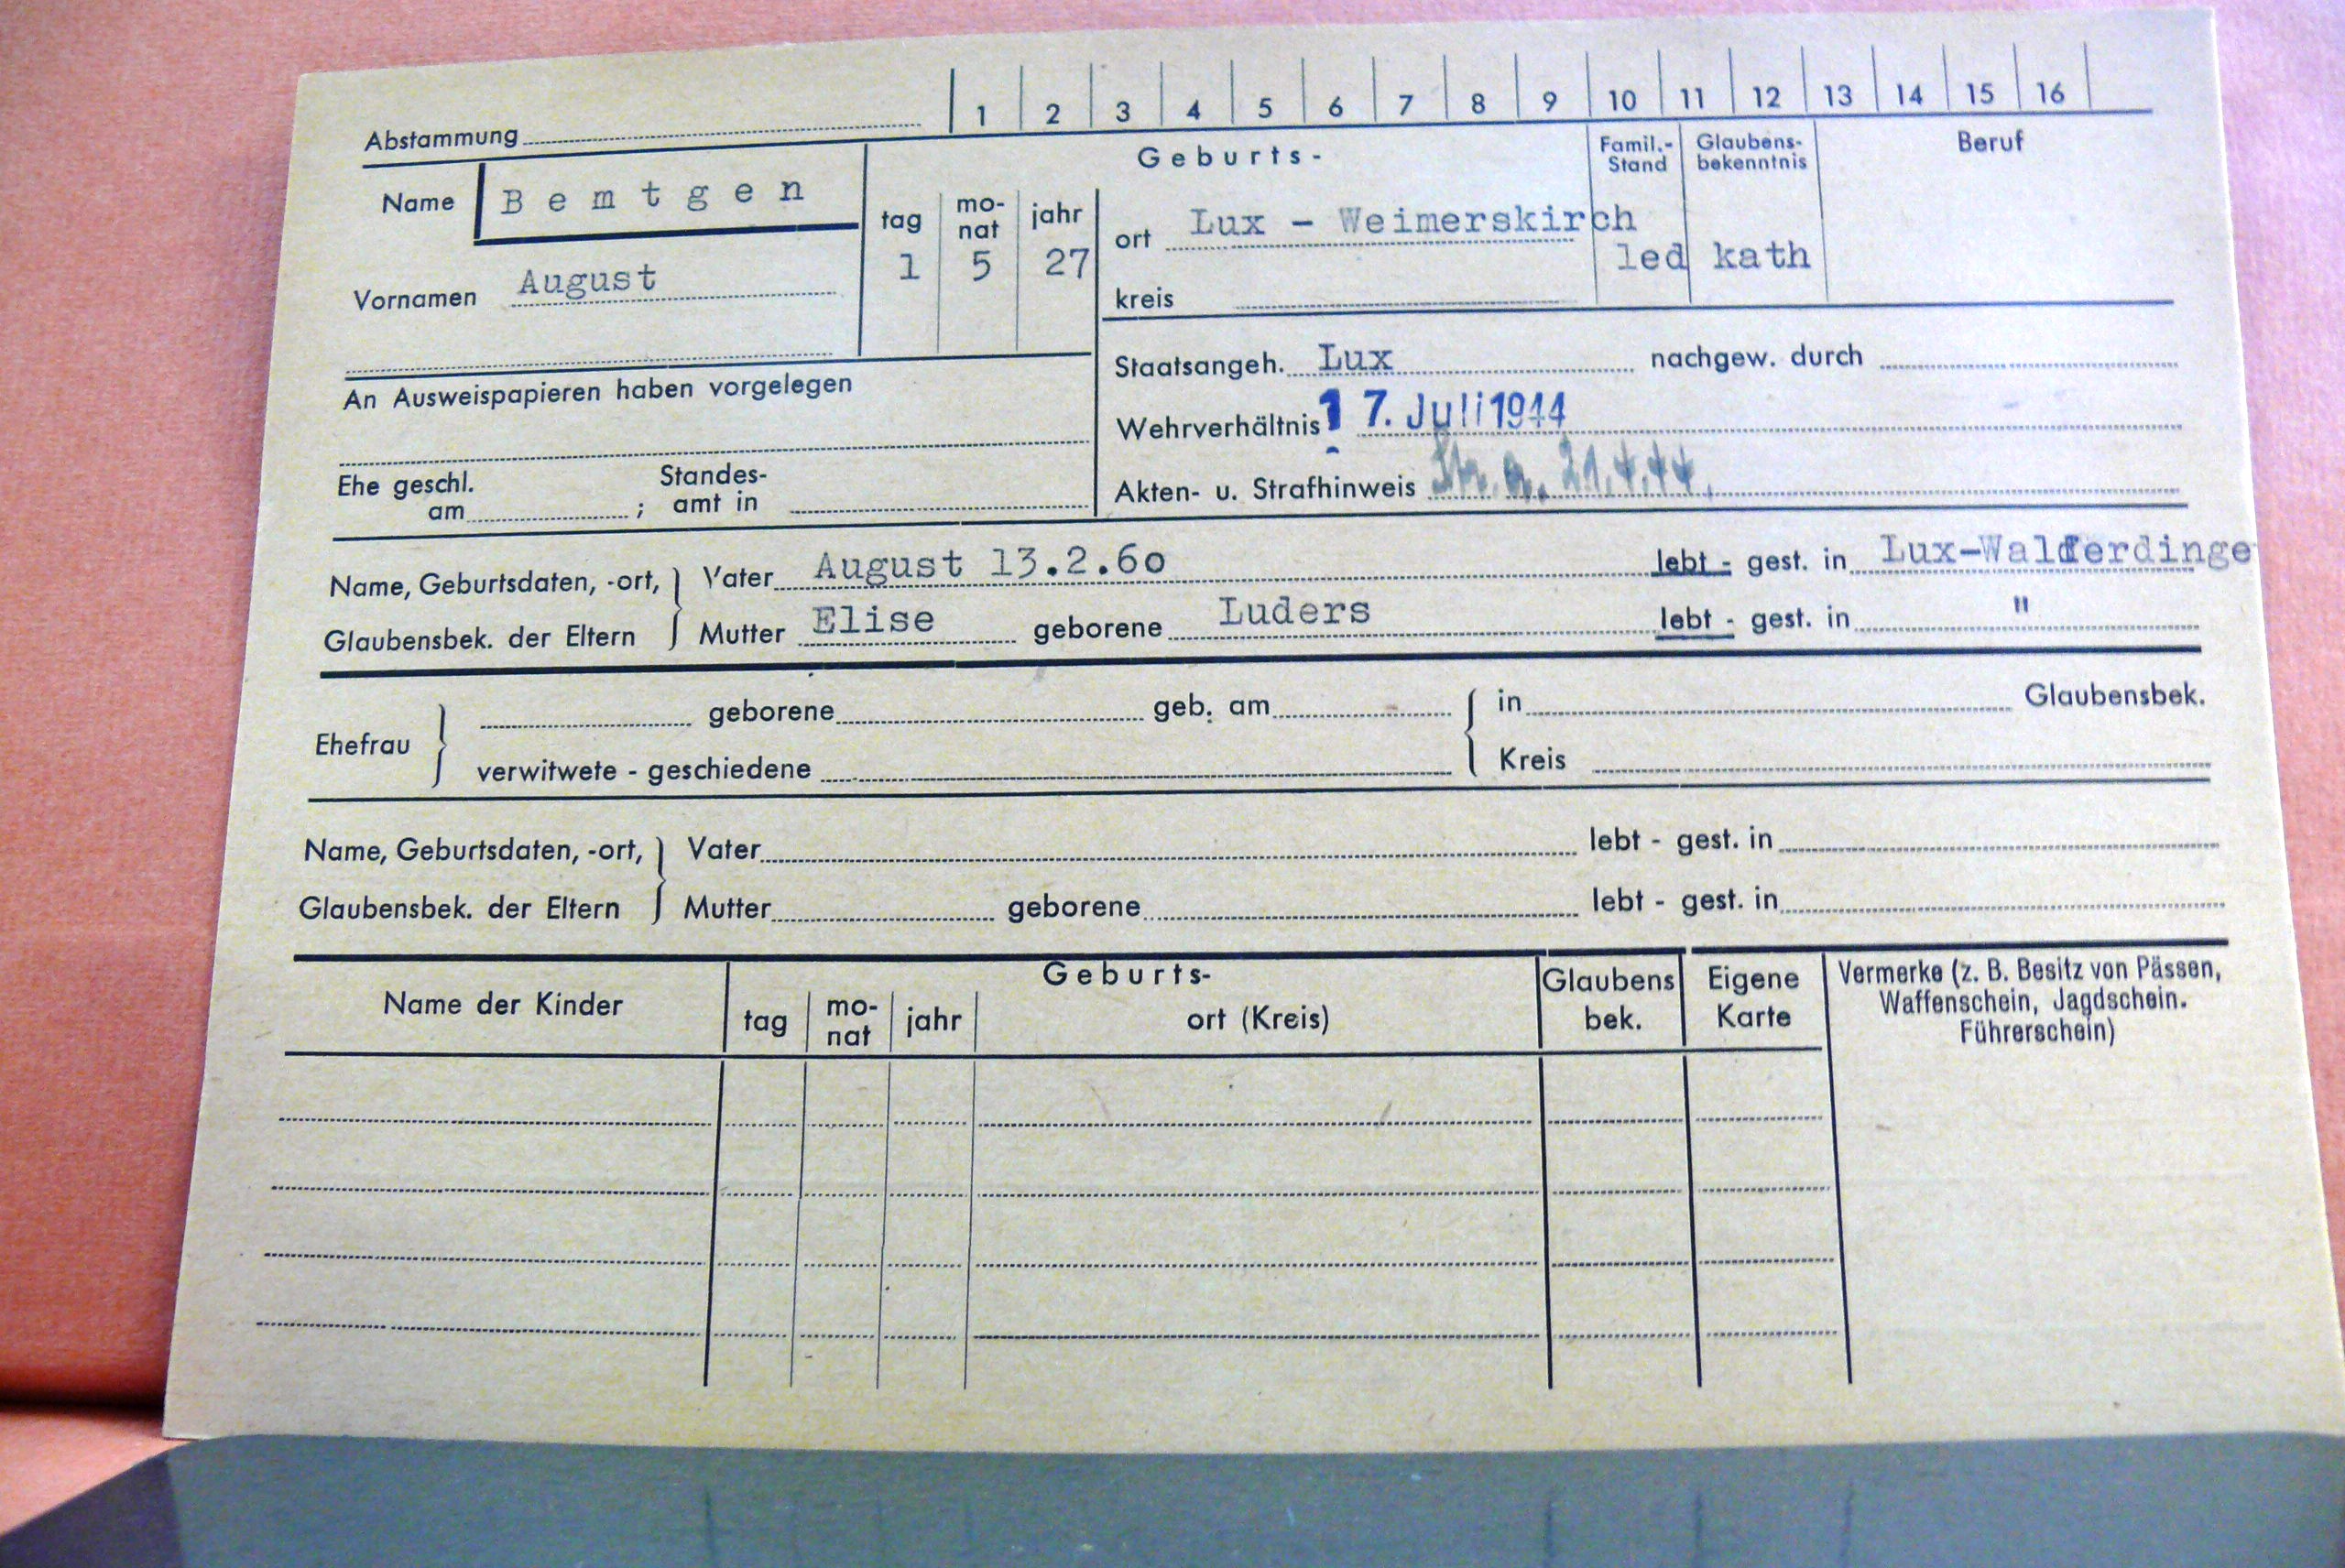 1 2 3 4 5 6 7 8 9 10 11 12 13 14 15 16
Abstammung
Name Bemtgen
Vornamen August
Geburts-
tag mo-nat jahr
1 5 27
ort Lux - Weimerskirch
kreis
Famil.-Stand led
Glaubens-bekenntnis kath
Beruf
An Ausweispapieren haben vorgelegen
Staatsangeh. Lux nachgew. durch
Wehrverhältnis 17. Juli 1944
Ehe geschl. am ; Standes-amt in
Akten- u. Strafhinweis 21.4.44.
Name, Geburtsdaten, -ort, Vater August 13.2.60 lebt - gest. in Lux-Walferdinge
Glaubensbek. der Eltern Mutter Elise geborene Luders lebt - gest. in "
Ehefrau geborene geb. am in Glaubensbek.
verwitwete - geschiedene Kreis
Name, Geburtsdaten, -ort, Vater lebt - gest. in
Glaubensbek. der Eltern Mutter geborene lebt - gest. in
Name der Kinder
Geburts-
tag mo-nat jahr ort (Kreis)
Glaubens bek.
Eigene Karte
Vermerke (z. B. Besitz von Pässen,
Waffenschein, Jagdschein.
Führerschein)